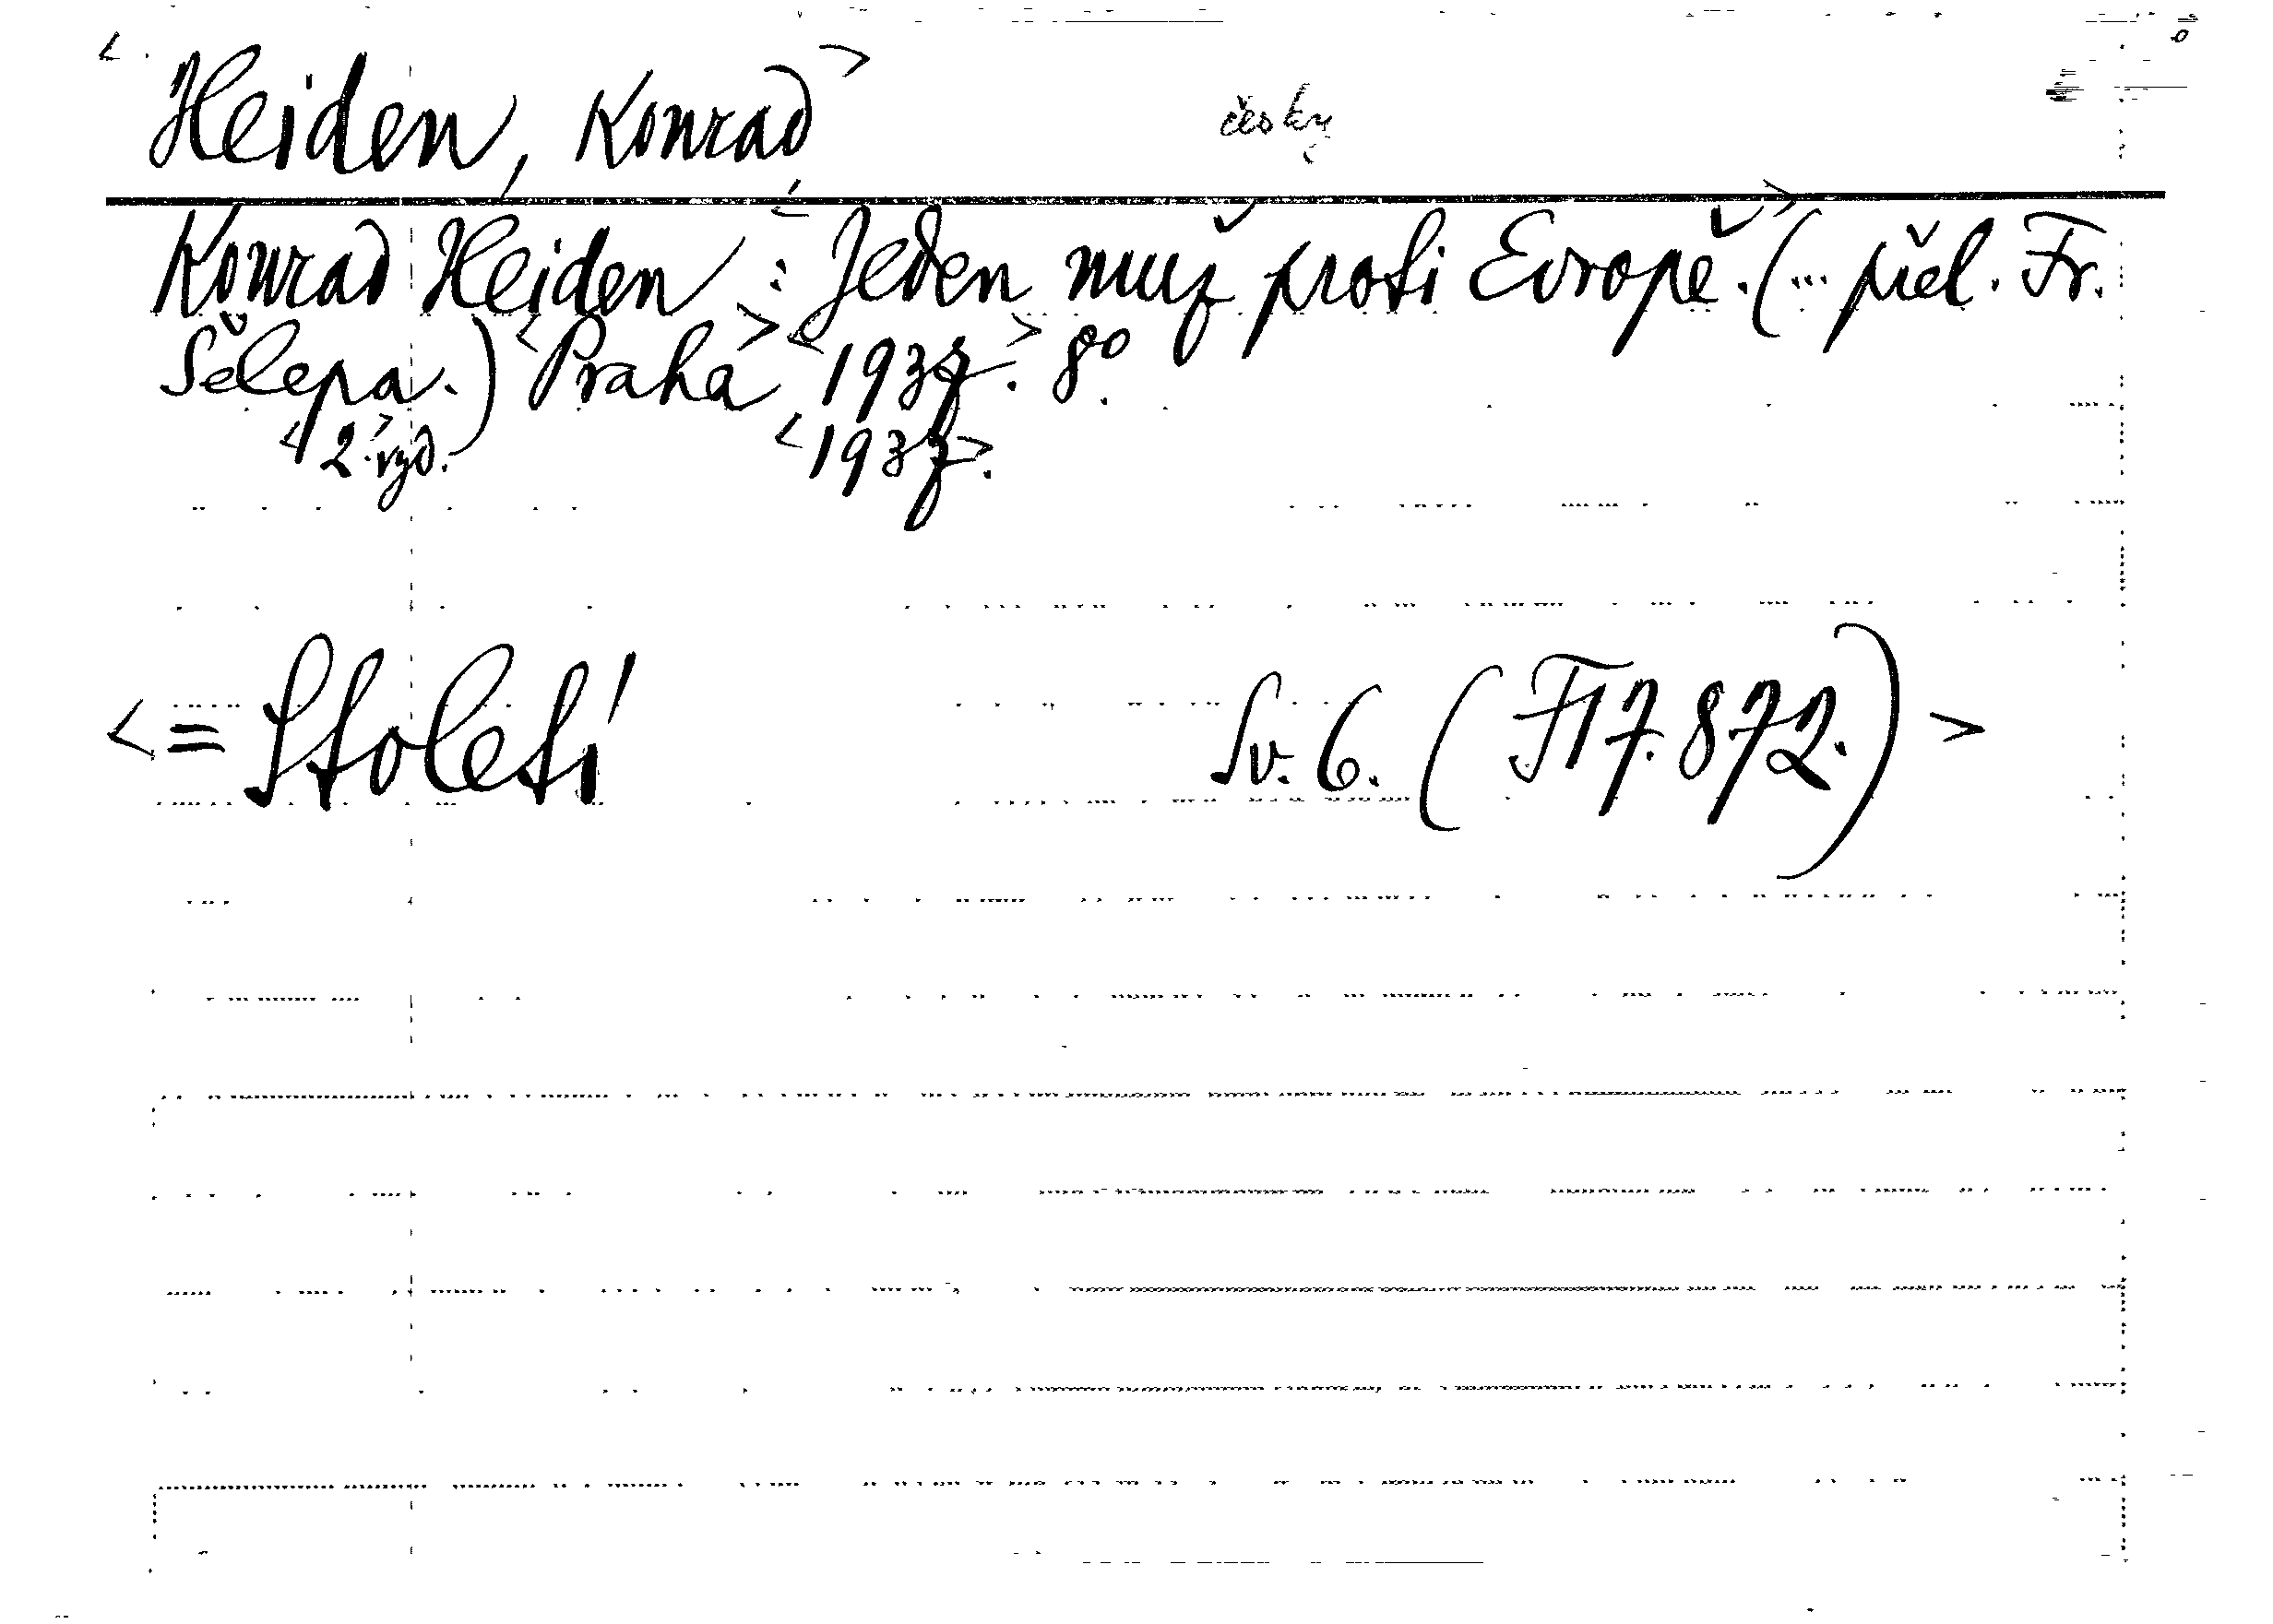 <Heiden, Konrad> česky
Konrad Heiden: <Jeden muž proti Evropě.> (... přel. Fr.
Šelepa.) <Praha> <1937>. 8°.
<2.> vyd. <1937>.
<= Století Sv. 6. (F17.872.)>